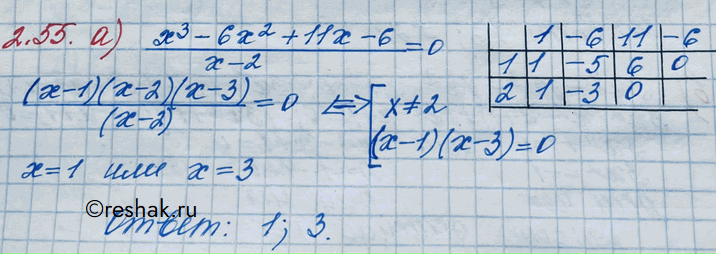 2.55. а) (x³ - 6x² + 11x - 6)/(x - 2) = 0
1 -6 11 -6
1 1 -5 6 0
2 1 -3 0
(x-1)(x-2)(x-3)/(x-2) = 0 <=> [ x ≠ 2
(x-1)(x-3) = 0
x = 1 или x = 3
©reshak.ru
Ответ: 1; 3.